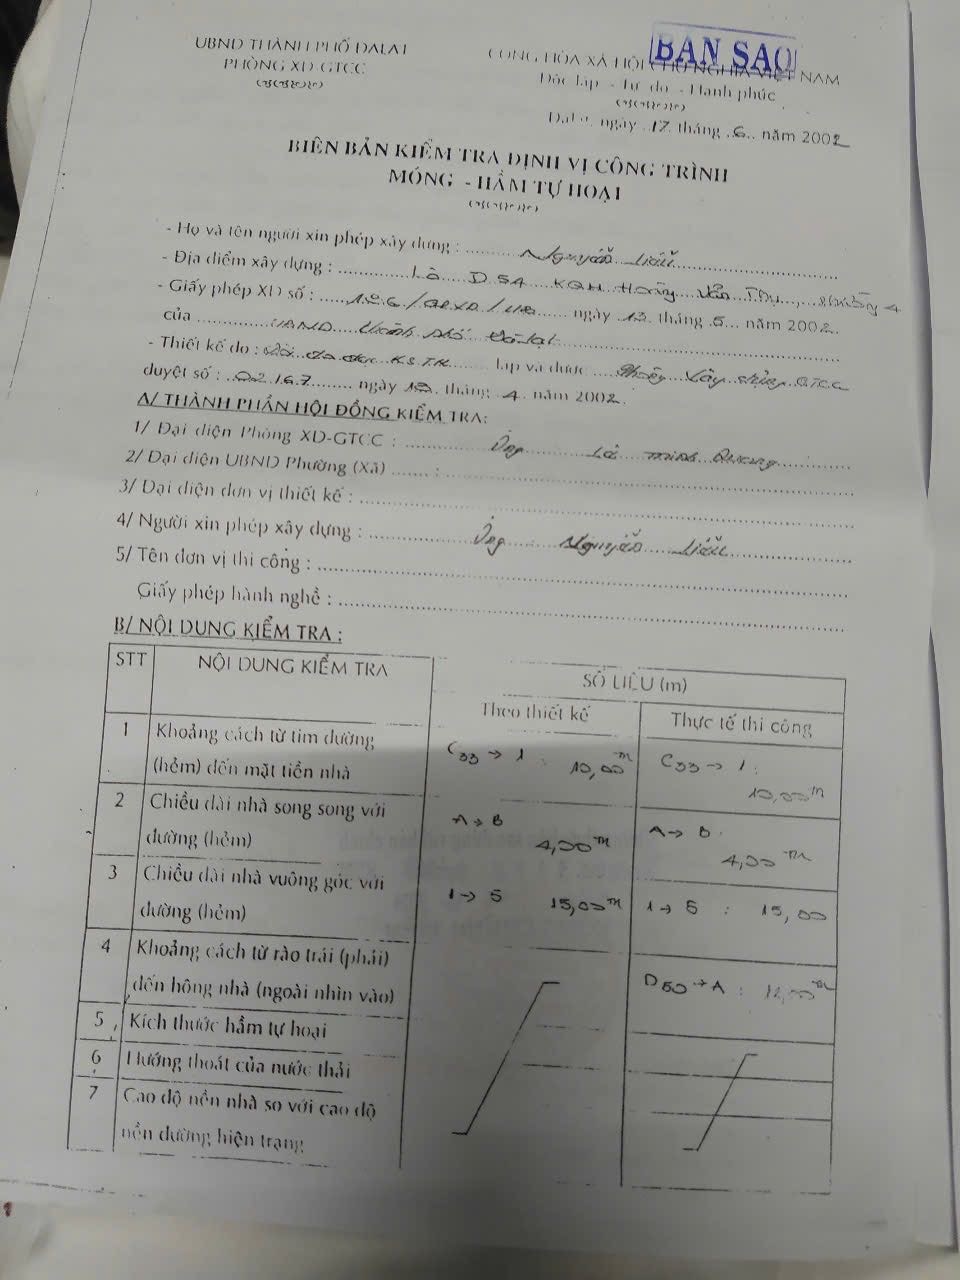 BẢN SAO
UBND THÀNH PHỐ ĐALAT
PHÒNG XD-GTCC
CỘNG HÒA XÃ HỘI CHỦ NGHĨA VIỆT NAM
Độc lập - Tự do - Hạnh phúc
Dalat, ngày 17 tháng 6 năm 2002
BIÊN BẢN KIỂM TRA ĐỊNH VỊ CÔNG TRÌNH
MÓNG - HẦM TỰ HOẠI
- Họ và tên người xin phép xây dựng : Nguyễn
- Địa điểm xây dựng : Lô D54 KQH Hoàng Văn Thụ, phường 4
- Giấy phép XD số : 126/GPXD/UB ngày 13 tháng 5 năm 2002
của UBND thành phố Đà Lạt
- Thiết kế do : KSTK lập và được Phòng Xây dựng GTCC
duyệt số : 02167 ngày 18 tháng 4 năm 2002
A/ THÀNH PHẦN HỘI ĐỒNG KIỂM TRA:
1/ Đại diện Phòng XD-GTCC : Ông Lê Minh
2/ Đại diện UBND Phường (Xã) :
3/ Đại diện đơn vị thiết kế :
4/ Người xin phép xây dựng : Ông Nguyễn
5/ Tên đơn vị thi công :
Giấy phép hành nghề :
B/ NỘI DUNG KIỂM TRA :
STT NỘI DUNG KIỂM TRA SỐ LIỆU (m)
Theo thiết kế Thực tế thi công
1 Khoảng cách từ tim đường C33 → 1 : 10,00m C33 → 1 :
(hẻm) đến mặt tiền nhà 10,00m
2 Chiều dài nhà song song với A → B A → B :
đường (hẻm) 4,00m 4,00m
3 Chiều dài nhà vuông góc với 1 → 5 15,00m 1 → 5 : 15,00
đường (hẻm)
4 Khoảng cách từ rào trái (phải)
đến hông nhà (ngoài nhìn vào) D50 → A :
5 Kích thước hầm tự hoại
6 Hướng thoát của nước thải
7 Cao độ nền nhà so với cao độ
nền đường hiện trạng